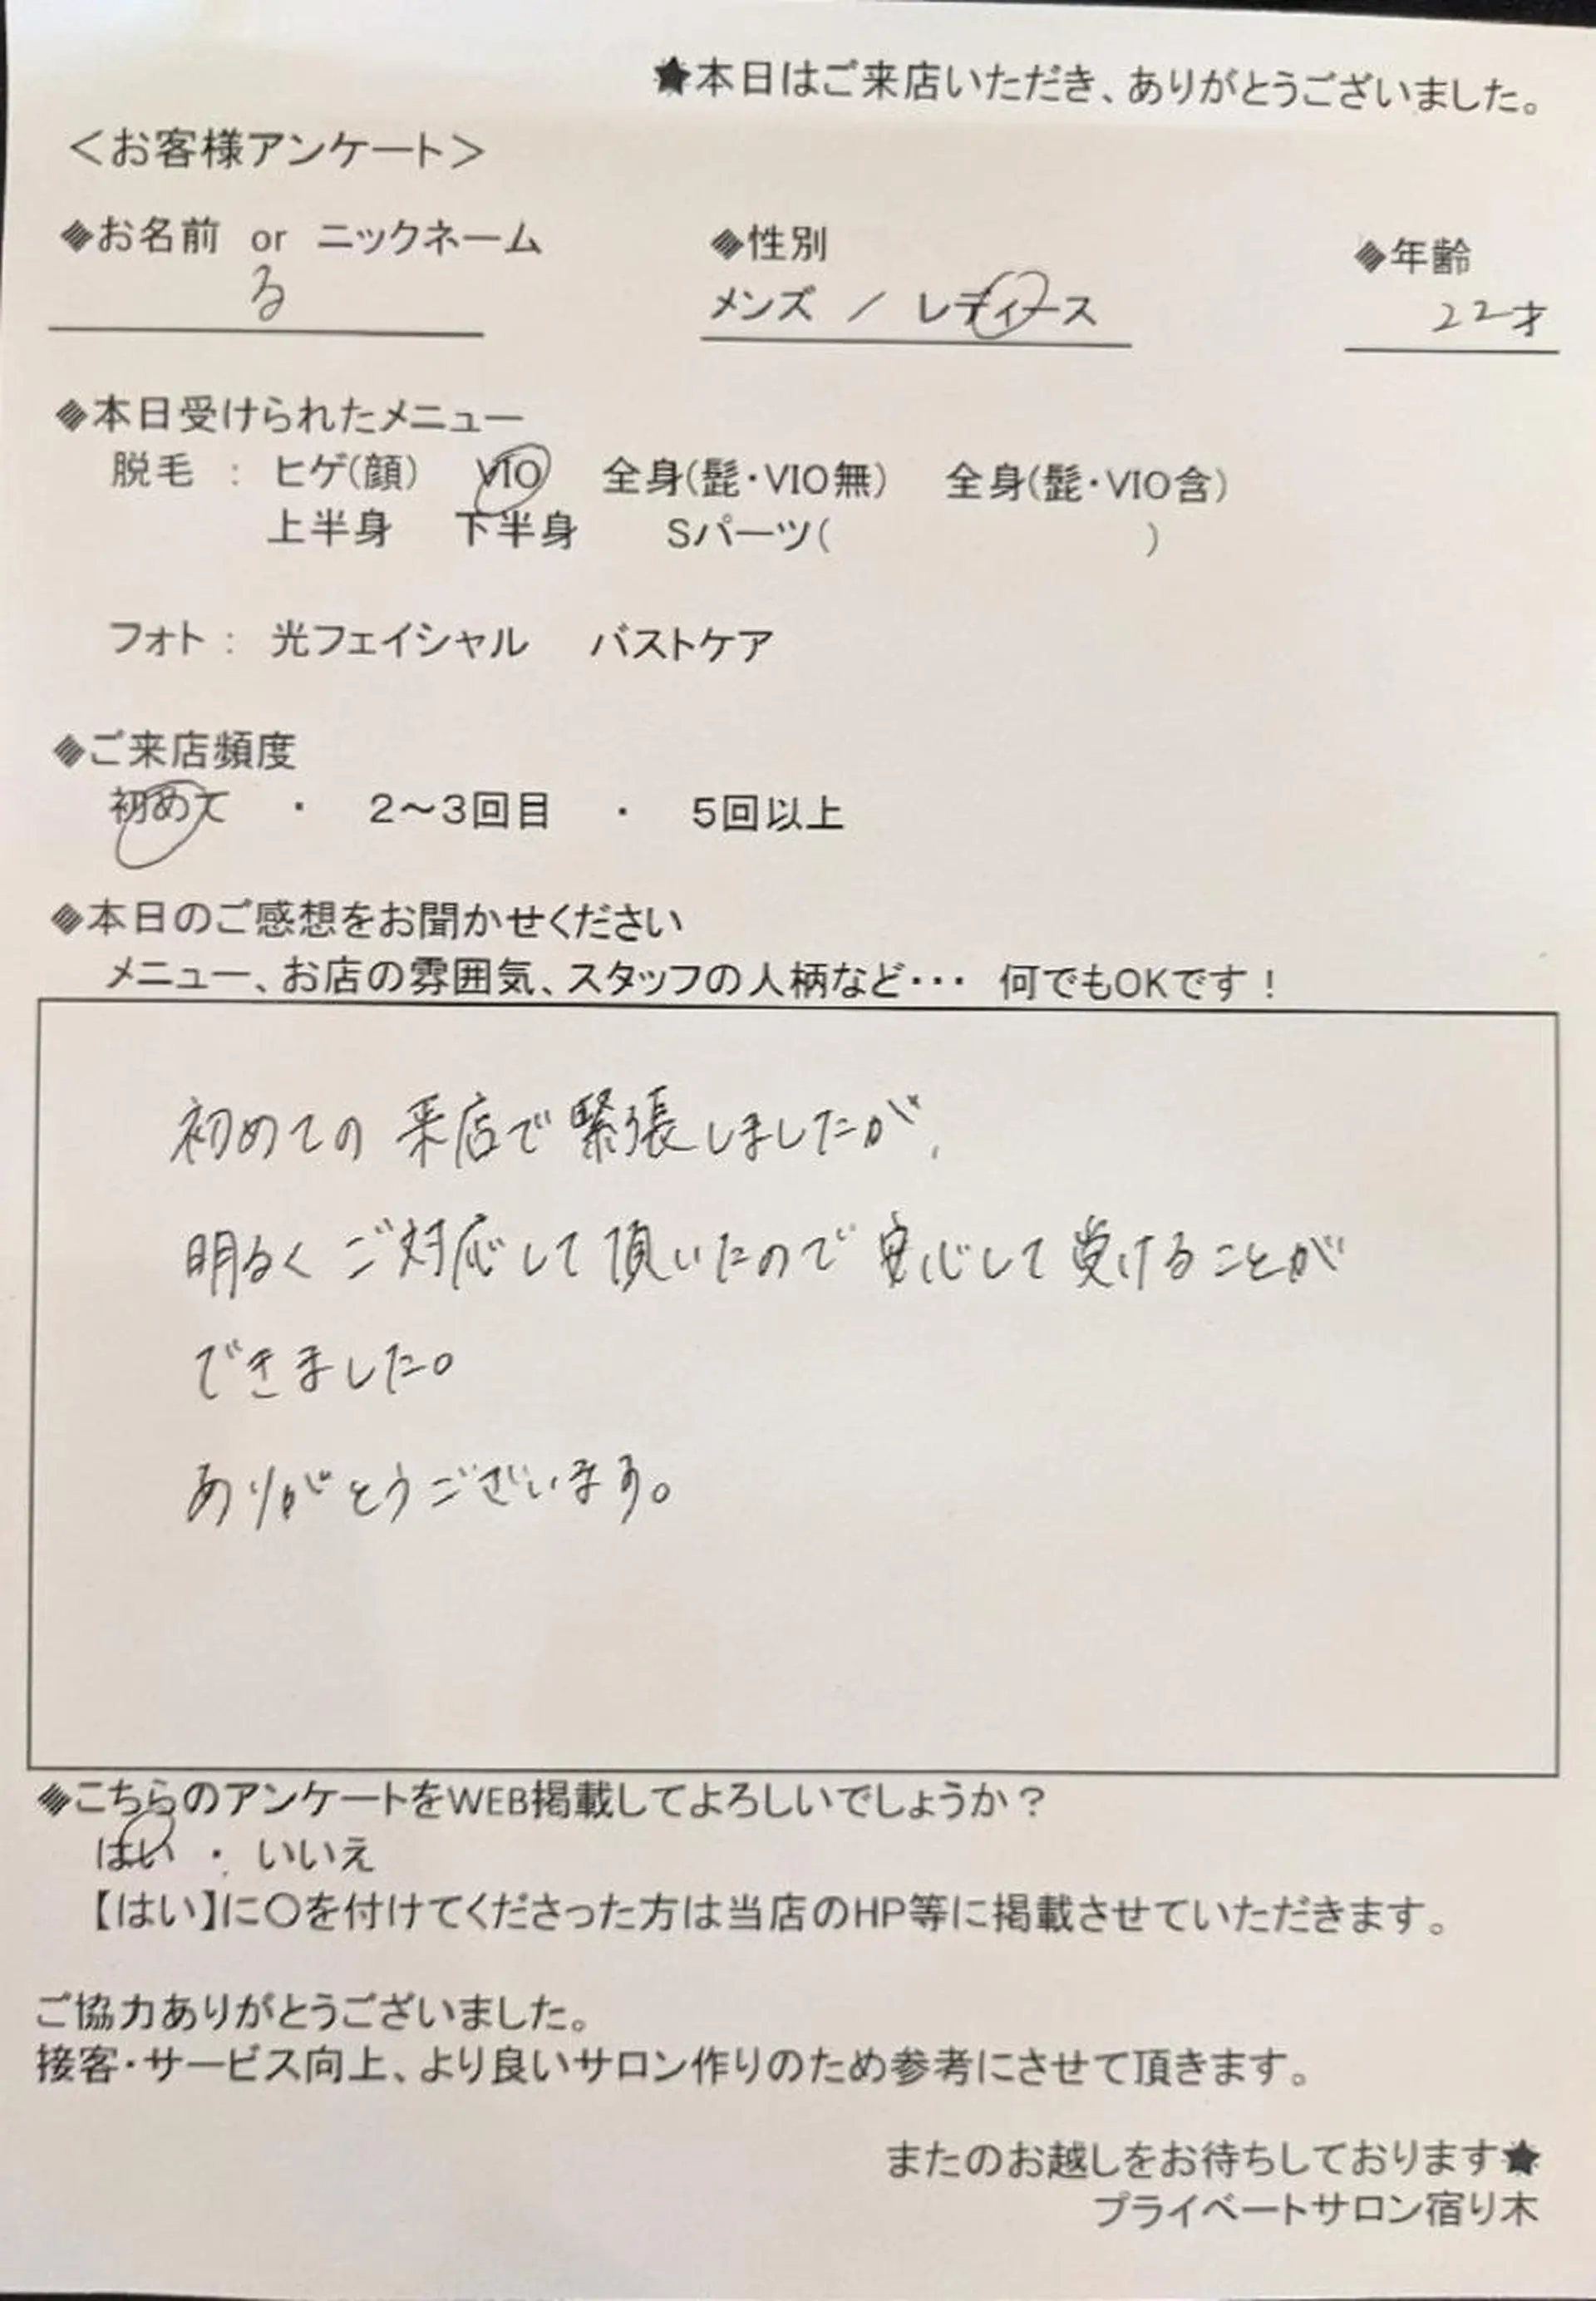 ★本日はご来店いただき、ありがとうございました。
＜お客様アンケート＞
◆お名前 or ニックネーム ◆性別 ◆年齢
る メンズ ／ レディース 22才
◆本日受けられたメニュー
脱毛 ： ヒゲ(顔) VIO 全身(髭・VIO無) 全身(髭・VIO含)
上半身 下半身 Sパーツ( )
フォト： 光フェイシャル バストケア
◆ご来店頻度
初めて ・ 2～3回目 ・ 5回以上
◆本日のご感想をお聞かせください
メニュー、お店の雰囲気、スタッフの人柄など・・・ 何でもOKです！
初めての来店で緊張しましたが、
明るくご対応して頂いたので安心して受けることが
できました。
ありがとうございます。
◆こちらのアンケートをWEB掲載してよろしいでしょうか？
はい ・ いいえ
【はい】に〇を付けてくださった方は当店のHP等に掲載させていただきます。
ご協力ありがとうございました。
接客・サービス向上、より良いサロン作りのため参考にさせて頂きます。
またのお越しをお待ちしております★
プライベートサロン宿り木